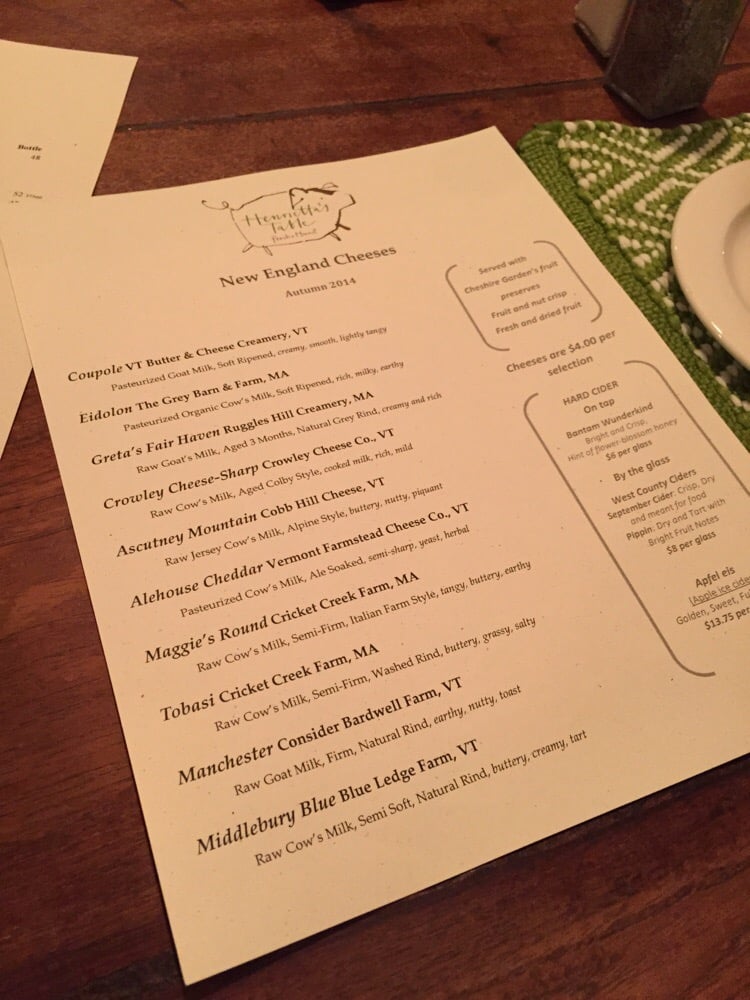 Bottle
48
$2
Henrietta's
Table
New England Cheeses
Autumn 2014
Coupole VT Butter & Cheese Creamery, VT
Pasteurized Goat Milk, Soft Ripened, creamy, smooth, lightly tangy
Eidolon The Grey Barn & Farm, MA
Pasteurized Organic Cow's Milk, Soft Ripened, rich, milky, earthy
Greta's Fair Haven Ruggles Hill Creamery, MA
Raw Goat's Milk, Aged 3 Months, Natural Grey Rind, creamy and rich
Crowley Cheese-Sharp Crowley Cheese Co., VT
Raw Cow's Milk, Aged Colby Style, cooked milk, rich, mild
Ascutney Mountain Cobb Hill Cheese, VT
Raw Jersey Cow's Milk, Alpine Style, buttery, nutty, piquant
Alehouse Cheddar Vermont Farmstead Cheese Co., VT
Pasteurized Cow's Milk, Ale Soaked, semi-sharp, yeast, herbal
Maggie's Round Cricket Creek Farm, MA
Raw Cow's Milk, Semi-Firm, Italian Farm Style, tangy, buttery, earthy
Tobasi Cricket Creek Farm, MA
Raw Cow's Milk, Semi-Firm, Washed Rind, buttery, grassy, salty
Manchester Consider Bardwell Farm, VT
Raw Goat Milk, Firm, Natural Rind, earthy, nutty, toast
Middlebury Blue Blue Ledge Farm, VT
Raw Cow's Milk, Semi Soft, Natural Rind, buttery, creamy, tart
Served with
Cheshire Garden's fruit
preserves
Fruit and nut crisp
Fresh and dried fruit
Cheeses are $4.00 per
selection
HARD CIDER
On tap
Bantam Wunderkind
Bright and Crisp,
Hint of flower-blossom honey
$6 per glass
By the glass
West County Ciders
September Cider: Crisp, Dry
and meant for food
Pippin: Dry and Tart with
Bright Fruit Notes
$8 per glass
Apfel eis
(Apple ice cider
Golden, Sweet,
$13.75 per